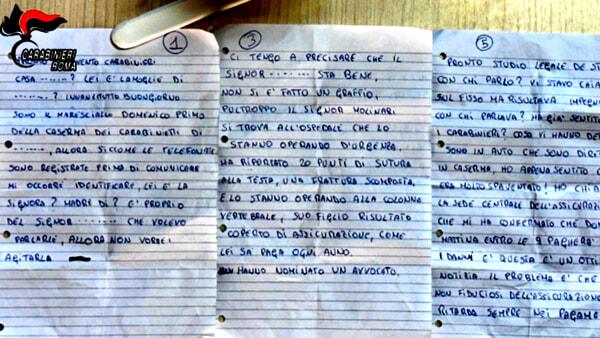 CARABINIERI
ROMA
1
CARABINIERI
CASA ........? LEI E' LA MOGLIE DI
........? INNANZITUTTO BUONGIORNO
SONO IL MARESCIALLO DOMENICO PRIMO
DELLA CASERMA DEI CARABINIERI DI
........, ALLORA SICCOME LE TELEFONATE
SONO REGISTRATE PRIMA DI COMUNICARE
MI OCCORRE IDENTIFICARE, LEI E' LA
SIGNORA? MADRE DI? E' PROPRIO
DEL SIGNOR ........ CHE VOLEVO
PARLARLE, ALLORA NON VORREI
AGITARLA
3
CI TENGO A PRECISARE CHE IL
SIGNOR ........ STA BENE,
NON SI E' FATTO UN GRAFFIO,
PULTROPPO IL SIGNOR MOLINARI
SI TROVA ALL'OSPEDALE CHE LO
STANNO OPERANDO D'URGENZA.
HA RIPORTATO 20 PUNTI DI SUTURA
ALLA TESTA, UNA FRATTURA SCOMPOSTA,
E LO STANNO OPERANDO ALLA COLONNA
VERTEBRALE, SUO FIGLIO RISULTATO
COPERTO DI ASSICURAZIONE, COME
LEI SA' PAGA OGNI ANNO.
HANNO NOMINATO UN AVVOCATO.
5
PRONTO STUDIO LEGALE DE
CON CHI PARLO? VI STAVO
SUL FISSO MA RISULTAVA
CON CHI PARLAVA? HA GIA'
I CARABINIERI? COSA VI HANNO
SONO IN AUTO CHE SONO
IN CASERMA, HO APPENA SENTITO
ERA MOLTO SPAVENTATO! HO
LA SEDE CENTRALE
CHE MI HA CONFERMATO CHE
MATTINA ENTRO LE 9 PAGHERA'
I DANNI E' QUESTA E' UN
NOTIZIA. IL PROBLEMA E' CHE
NON FIDUCIOSI
RITARDA SEMPRE NEI